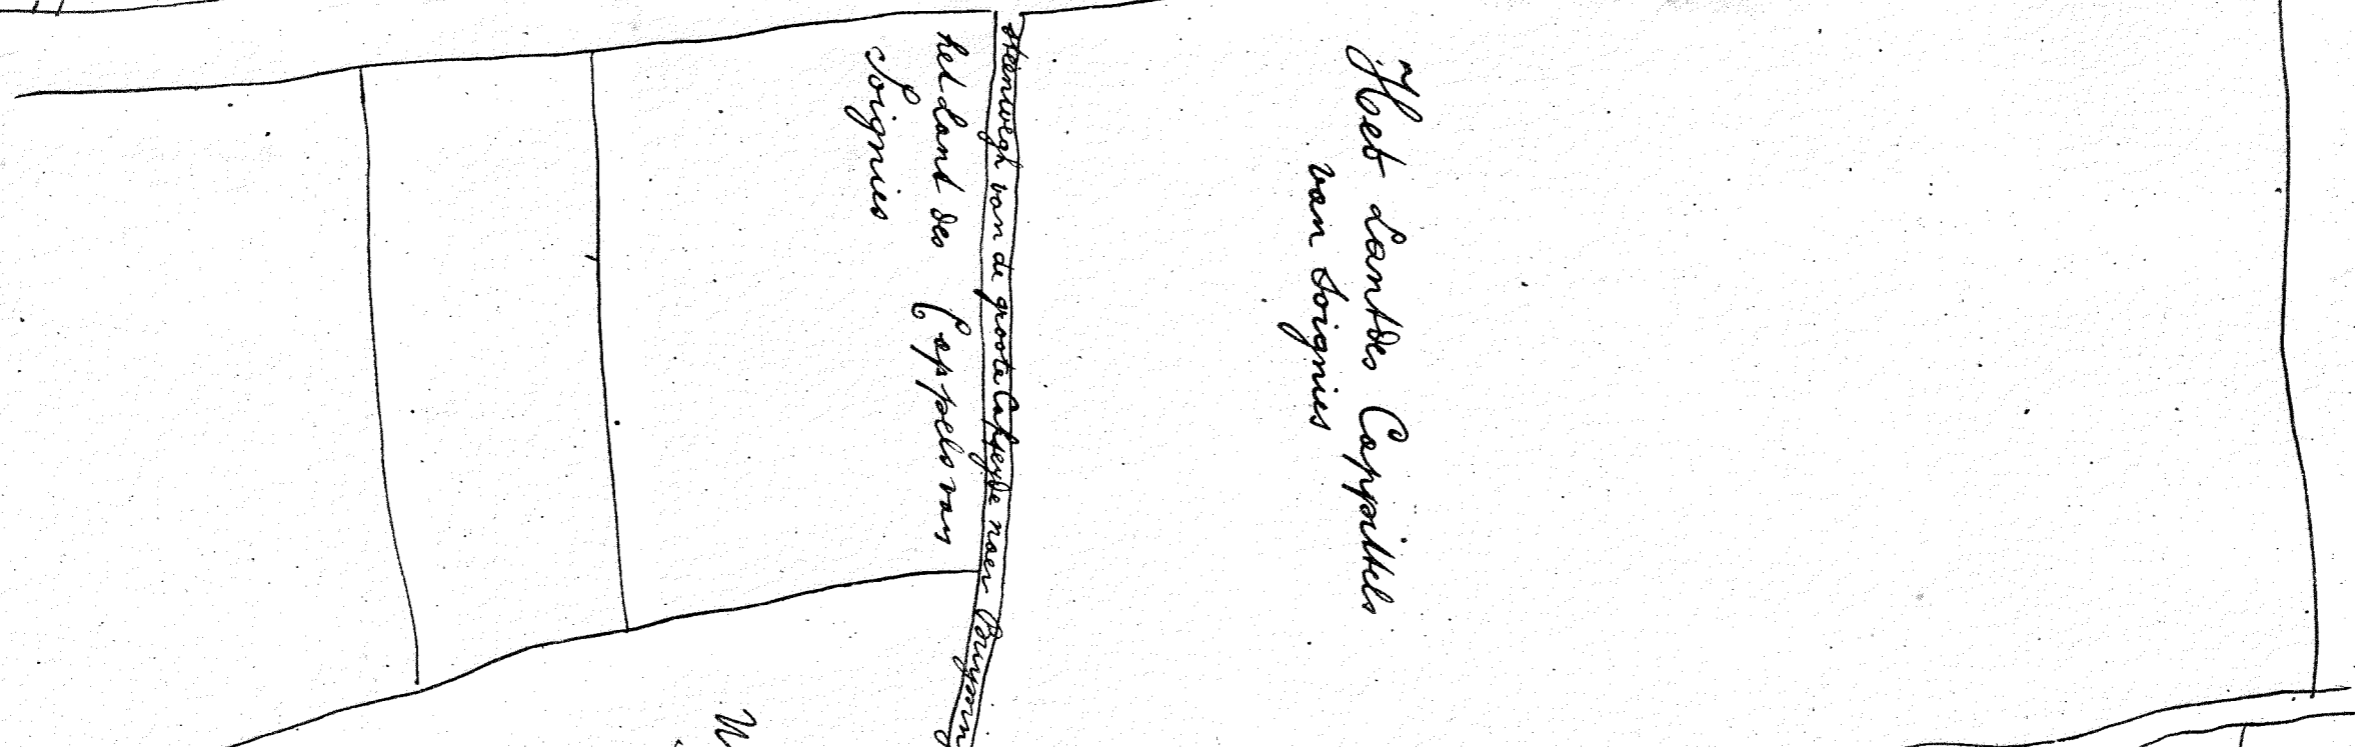 Het Landts Cappittels
van Soignies
steenwegh van de groote Calseyde naer
het Land des Cappels van
Soignies